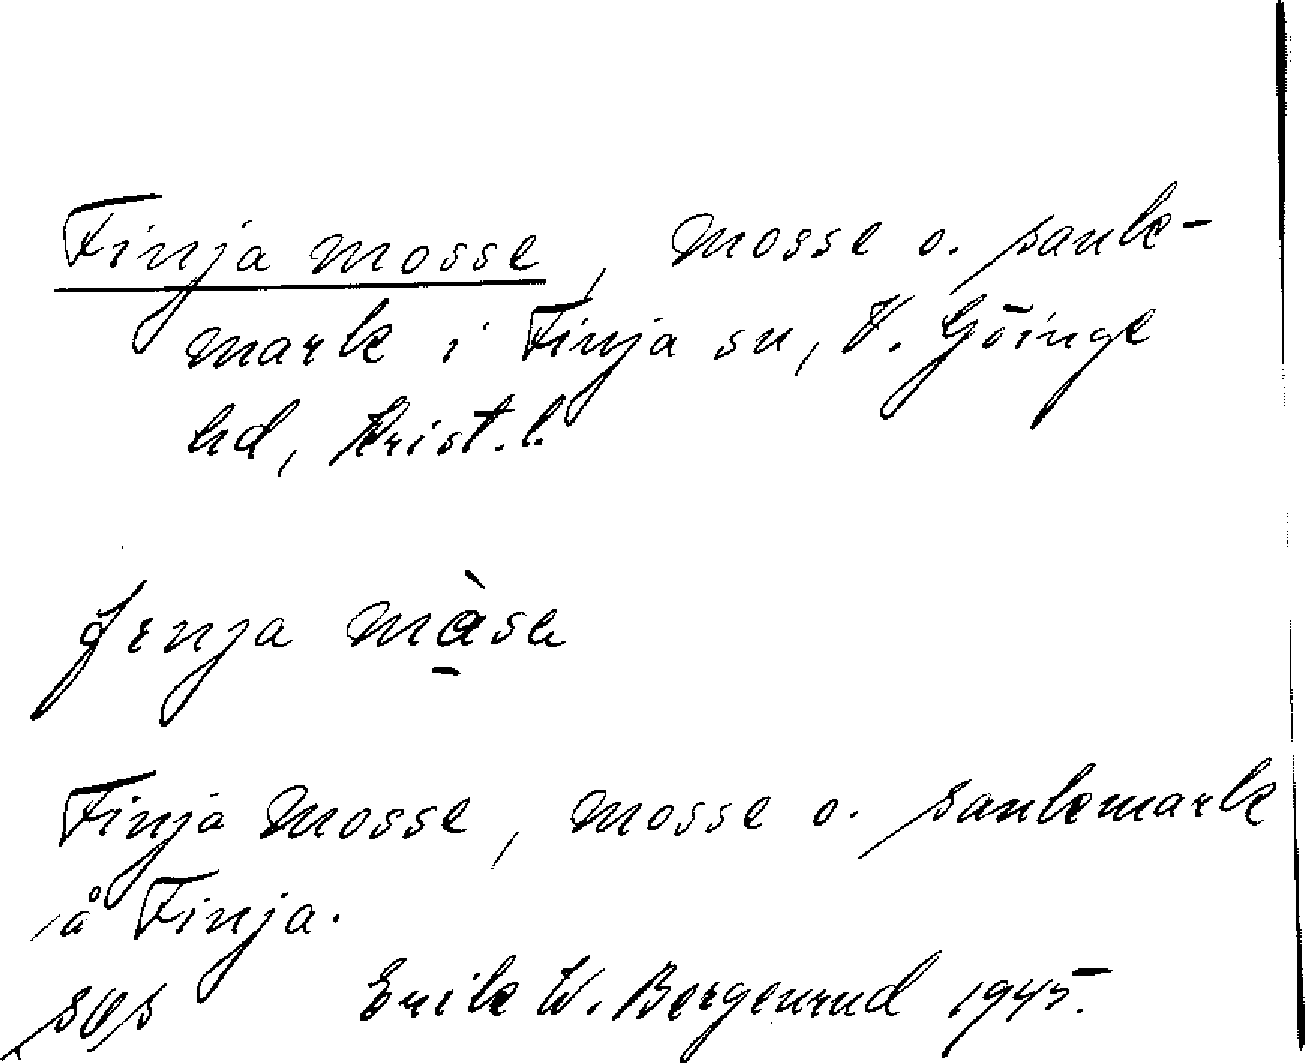 Finja mosse, mosse o. sank-
mark i Finja sn, V. Göinge
hd, Krist. l.
Finja Mosse, mosse o. sankmark
å Finja.
Erik W. Bergenrud 1945.